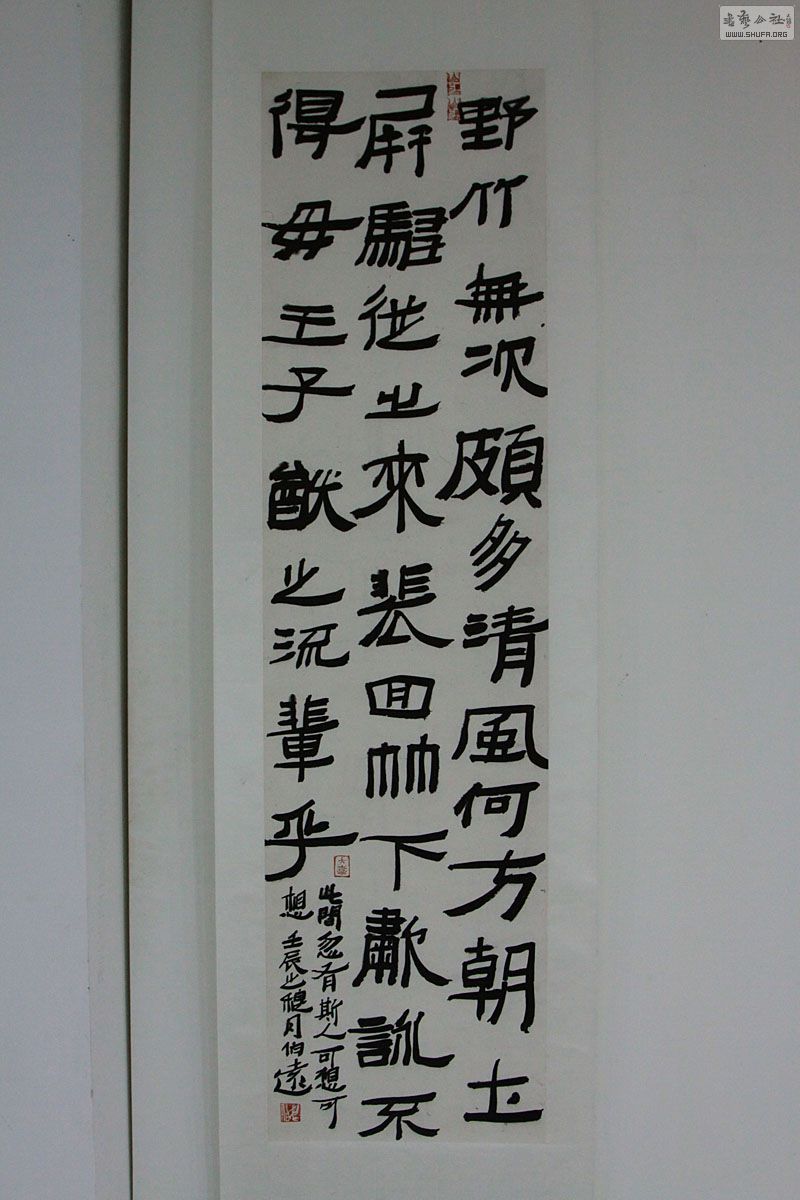 野竹無次頗多清風何方朝士
屏騶從止來裴回竹下歗詠不
得毋王子猷之流輩乎
此間忽有斯人可想可
想 壬辰之穐月伯遠
WWW.SHUFA.ORG